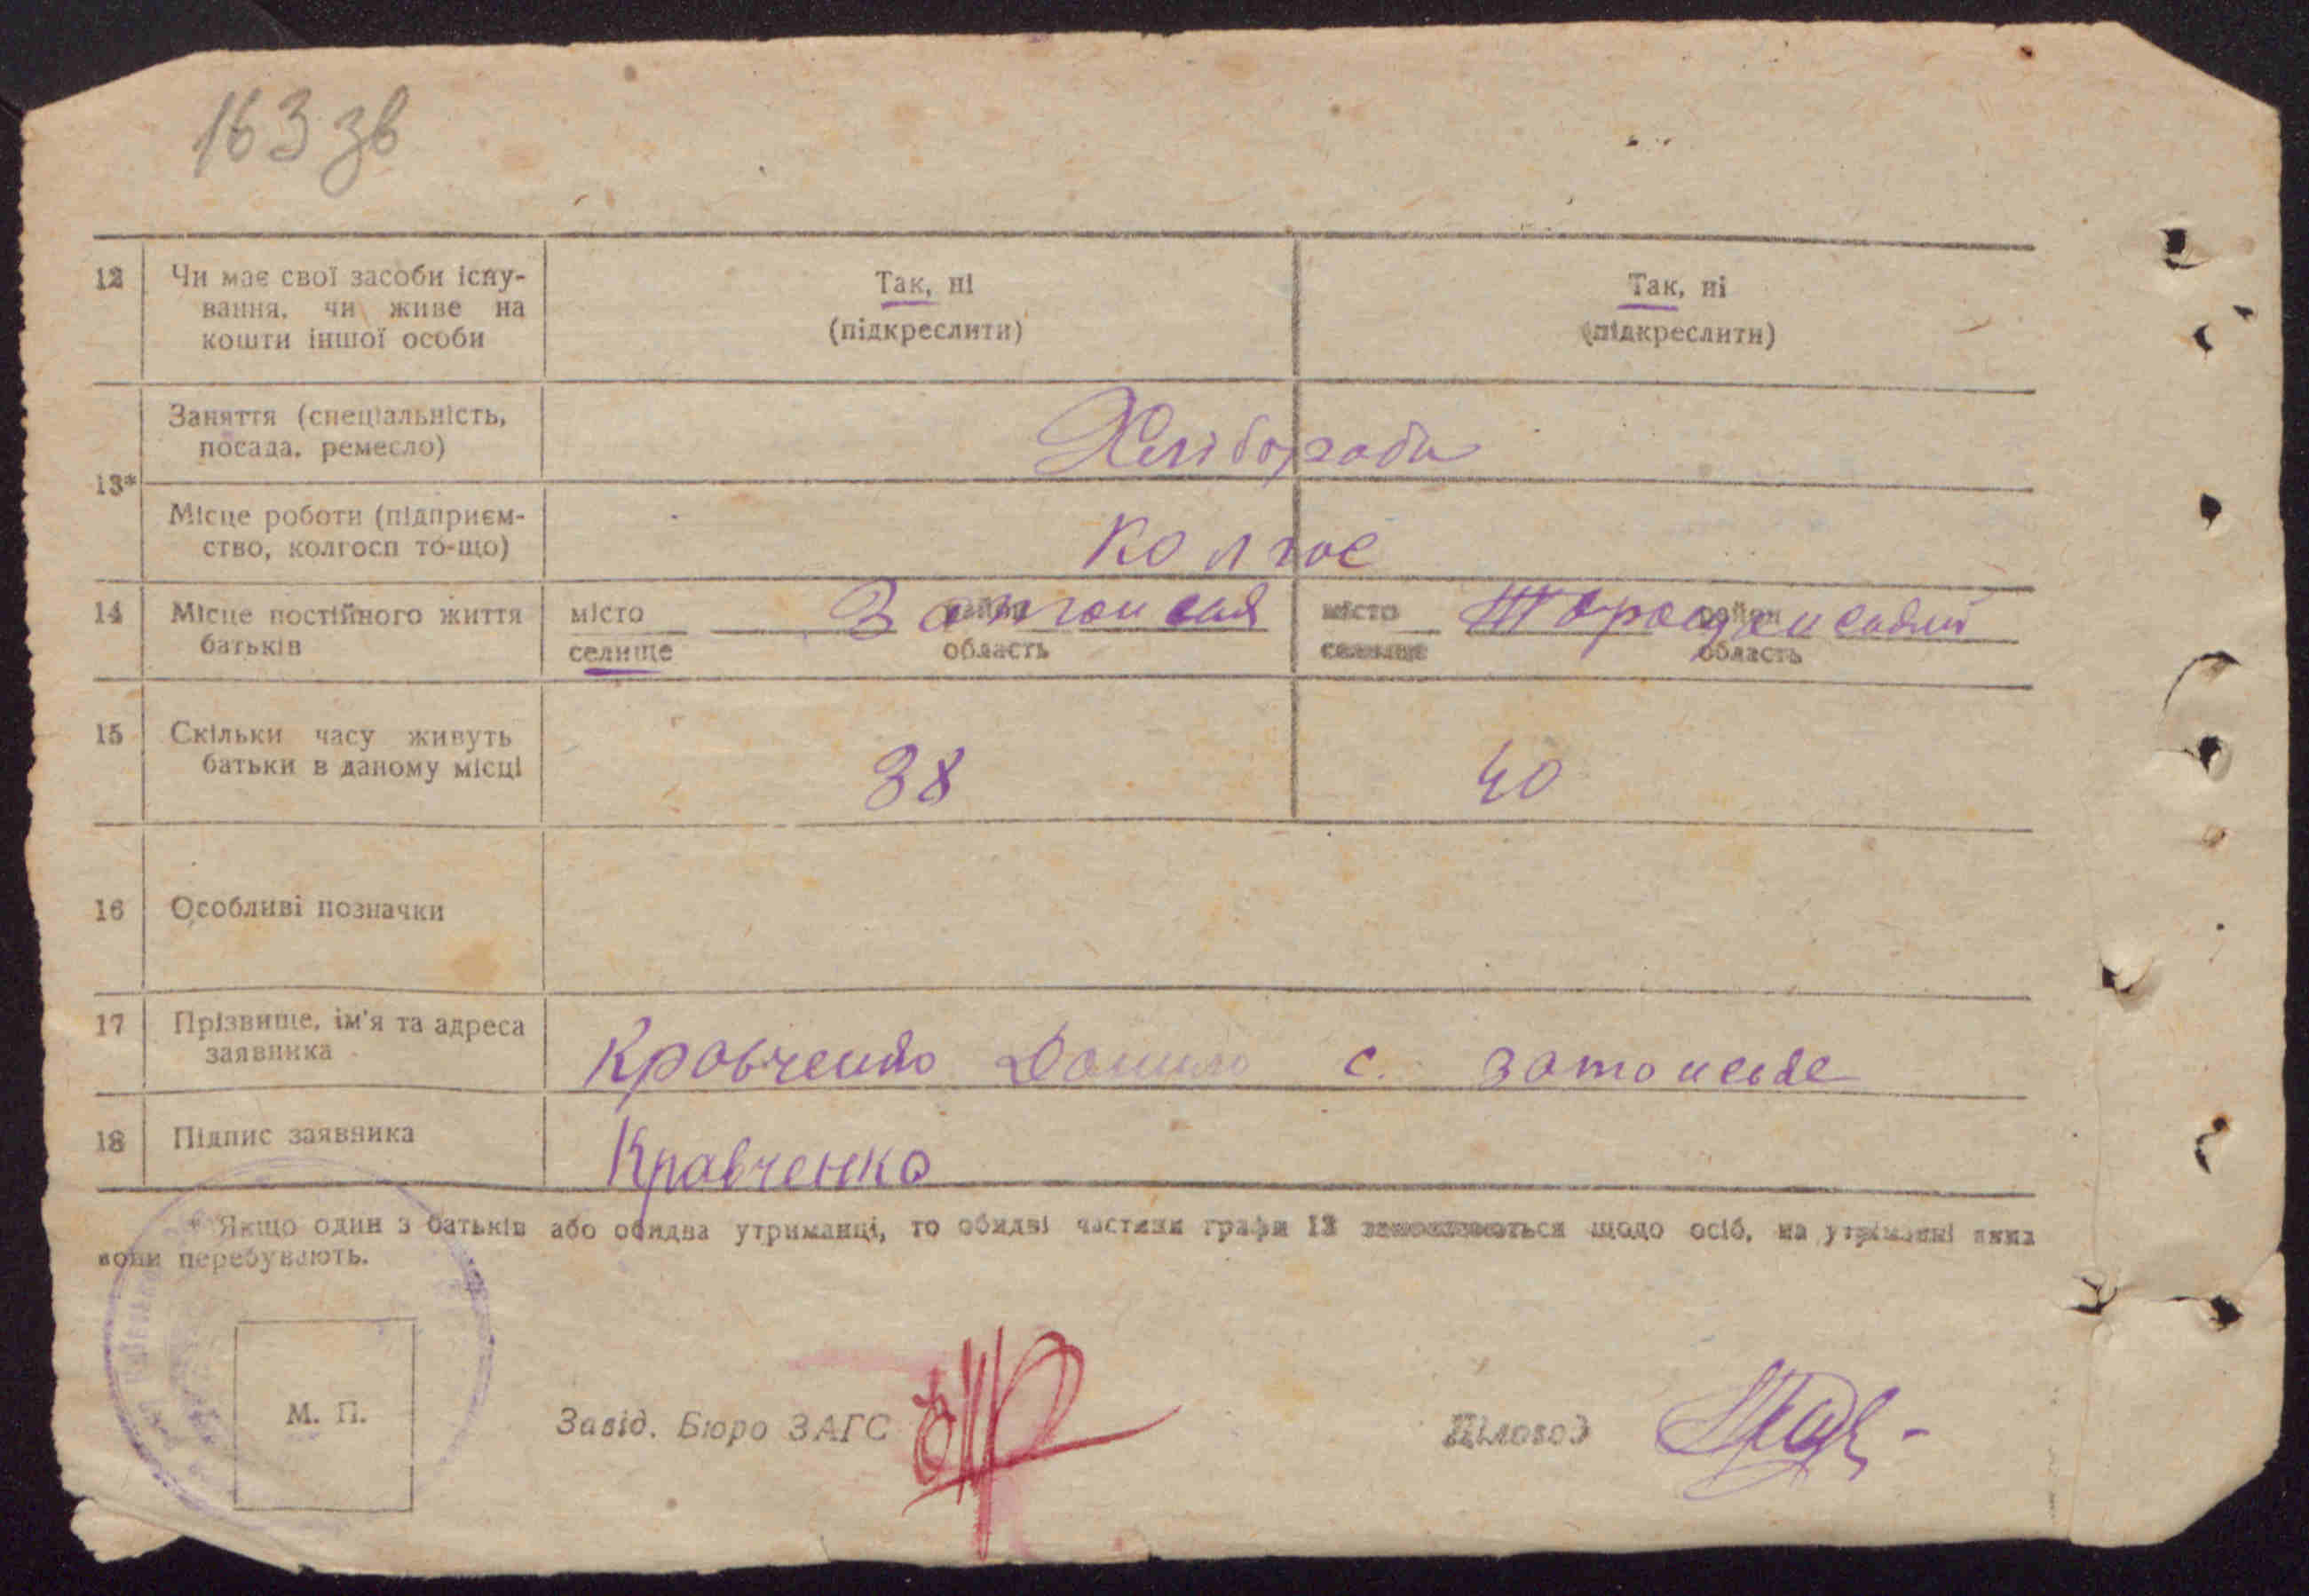 163 зв
12 Чи має свої засоби існу-
вання, чи живе на
кошти іншої особи
Так, ні
(підкреслити)
Так, ні
(підкреслити)
13*
Заняття (спеціальність,
посада, ремесло)
Хлібороби
Місце роботи (підприєм-
ство, колгосп то-що)
Колгос
14 Місце постійного життя
батьків
місто
селище
район
область
місто
селище
район
область
15 Скільки часу живуть
батьки в даному місці
38
40
16 Особливі позначки
17 Прізвище, ім'я та адреса
заявника
Кровченко Данило с. Затонське
18 Підпис заявника
Кравченко
* Якщо один з батьків або обидва утриманці, то обидві частини графи 13 заповнюються щодо осіб, на утриманні яких
вони перебувають.
М. П.
Завід. Бюро ЗАГС
Діловод